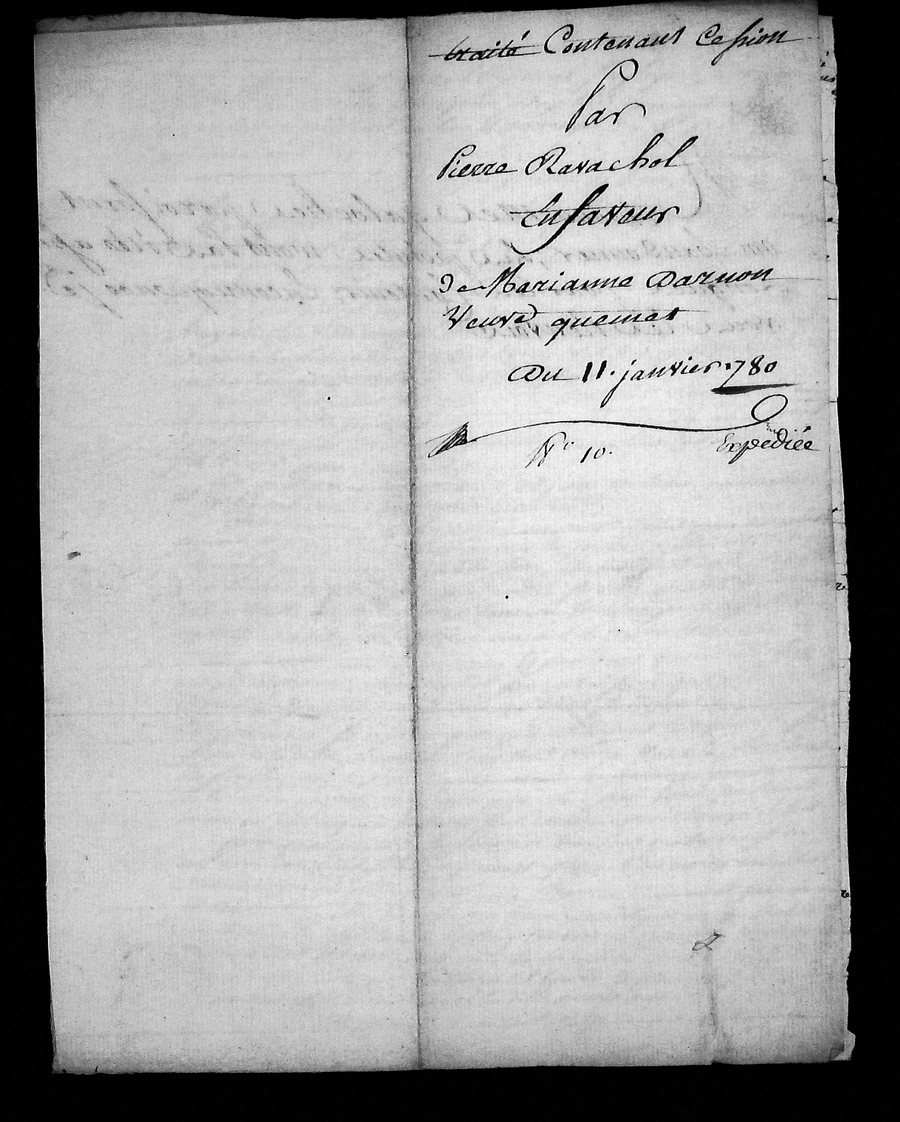 traité Contenant Cession
Par
Pierre Ravachol
En faveur
de Marianne Darnon
Veuve quemat
Du 11. janvier 1780
N° 10.
Expediée